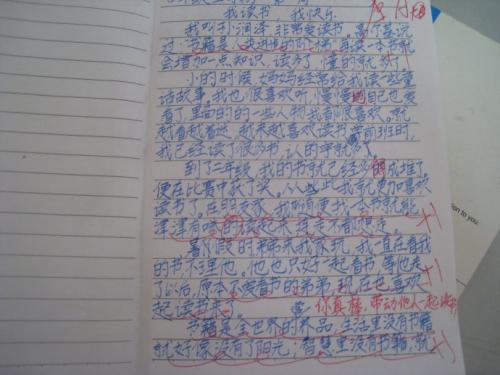 我读书 我快乐
我叫刘润泽 非常爱读书。高尔基说
过 书籍是人类进步的阶梯 每读一本书就
会增加一点知识 读多了 懂的就多了
小的时候 妈妈经常给我读一些童
话故事 我也很喜欢听 慢慢的自己也爱
看了 里面的的一些人物我都很喜欢。就
越看越着迷 越来越喜欢读书 学前班时
我已经读了很多书 认的字就多了
到了二年级 我的书就已经多的成堆了
便在比赛中获了奖。从此我就更加喜欢
读书了。在 我 本书就能
津津有味的读起来
暑假的时候 弟弟来我家玩 我一直在看我
的书不理他。他也只好一起看书 等他走
了以后 原本不爱看书的弟弟 现在也喜欢
起读书来。 你真棒 带动他人一起读书
书籍是全世界的养品 生活里没有书籍
就好像没有了阳光 智慧里没有书籍 就
tion to you